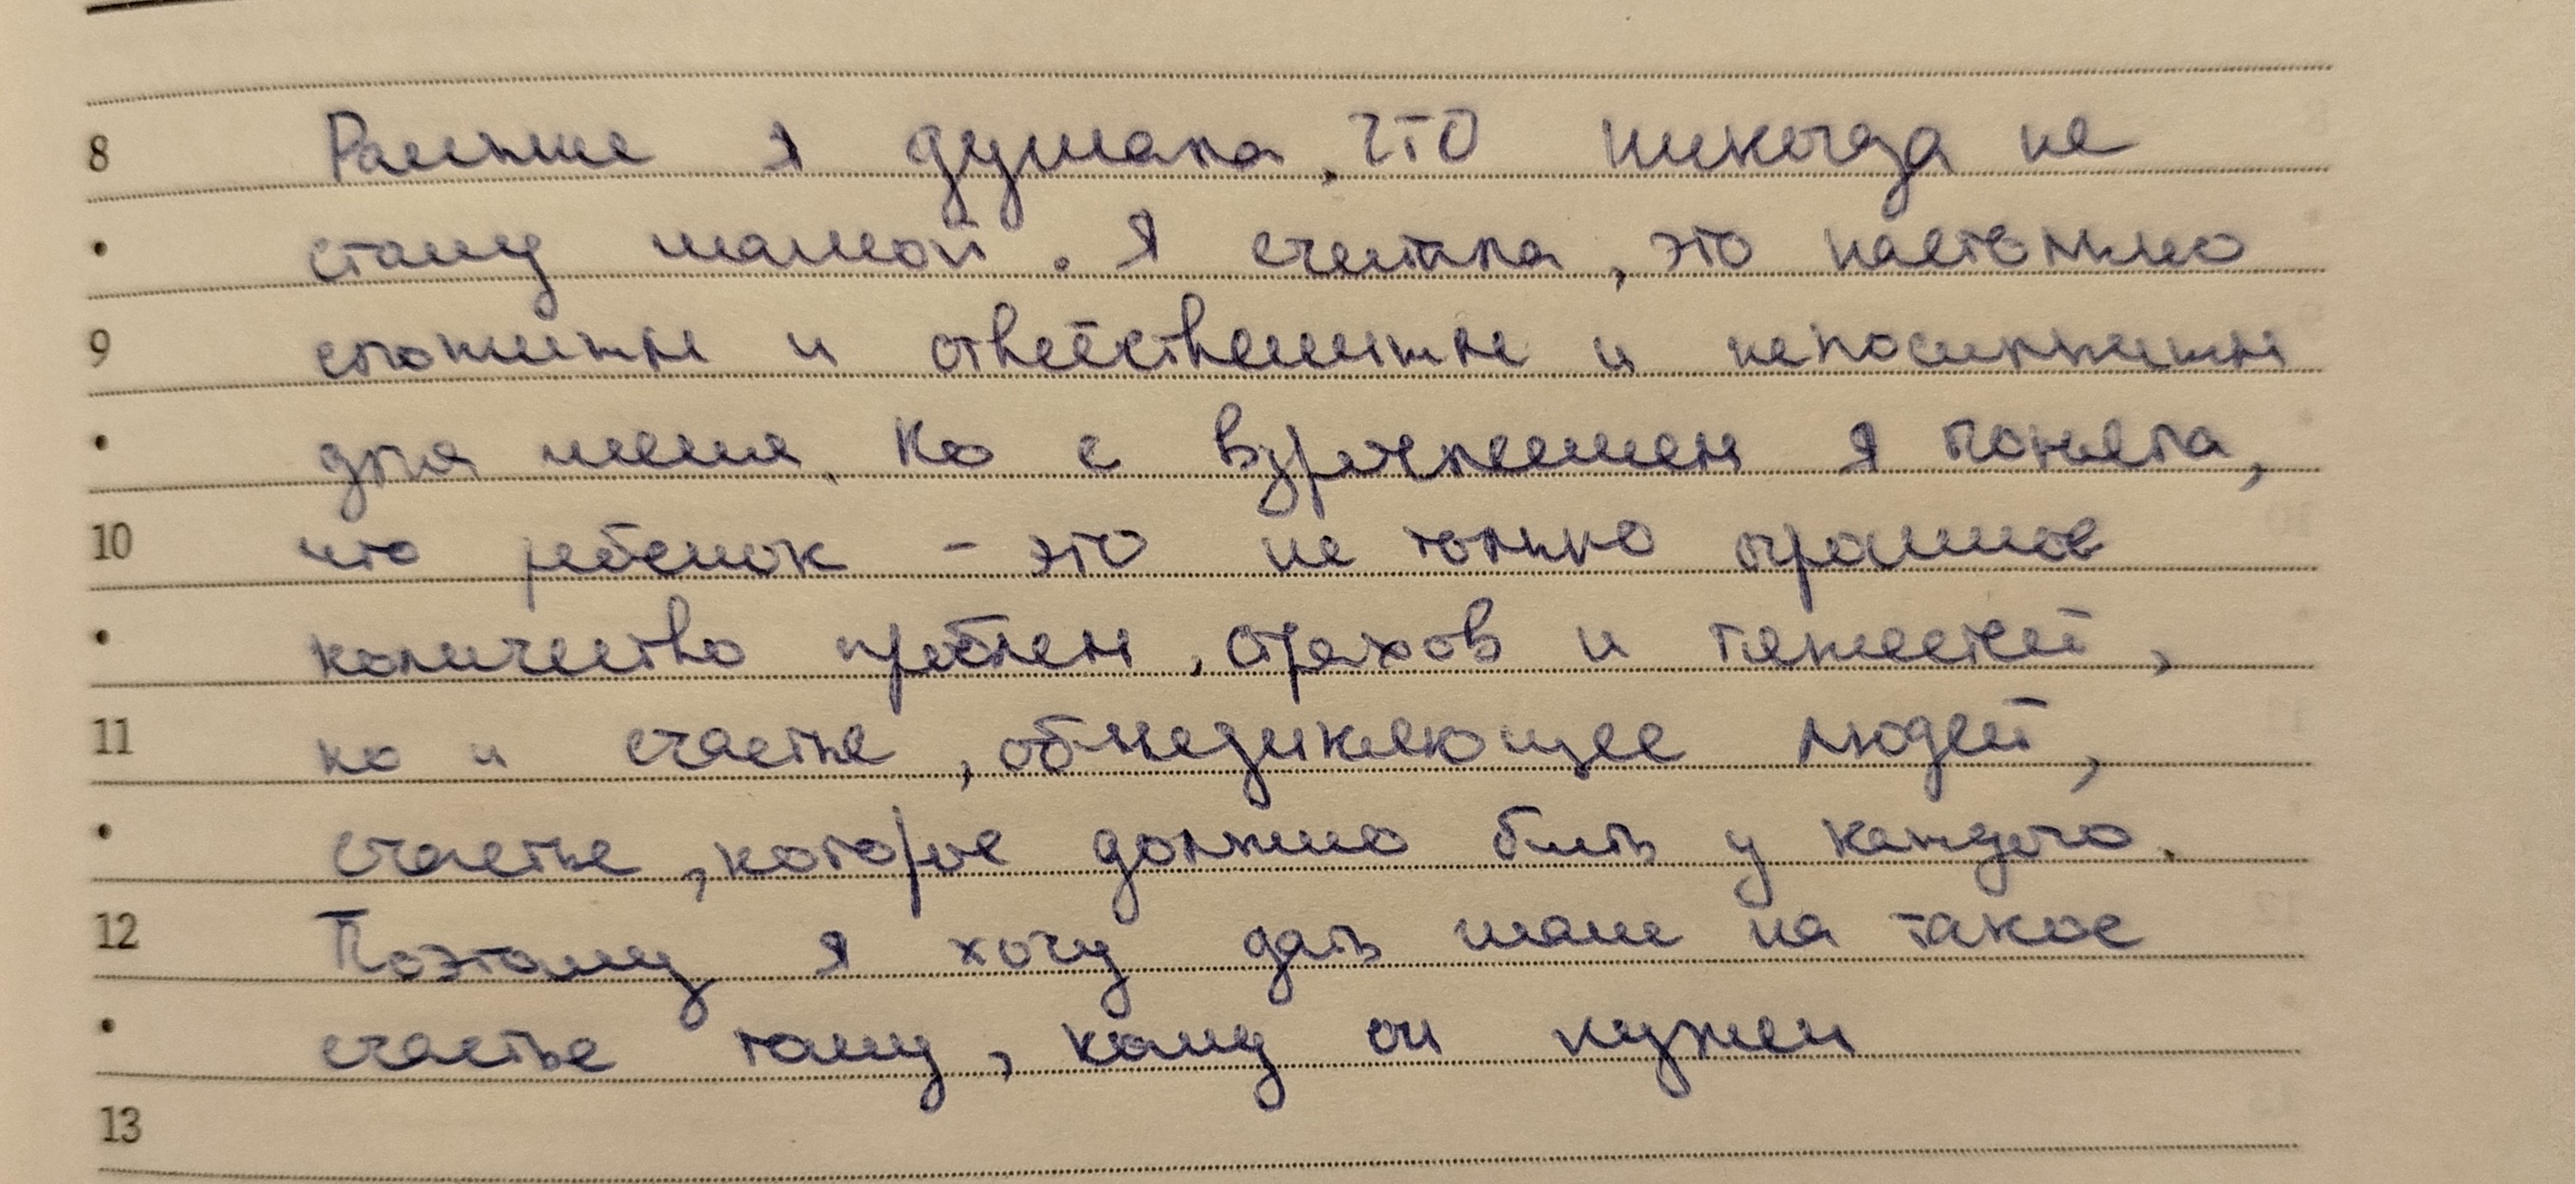 8 Раньше я думала, что никогда не
стану мамой. Я считала, это настолько
9 сложным и ответственным и непосильным
для меня. Но с взрослением я поняла,
10 что ребенок - это не только огромное
количество проблем, страхов и тяжестей,
11 но и счастье, объединяющее людей,
счастье, которое должно быть у каждого.
12 Поэтому я хочу дать шанс на такое
счастье тому, кому он нужен
13